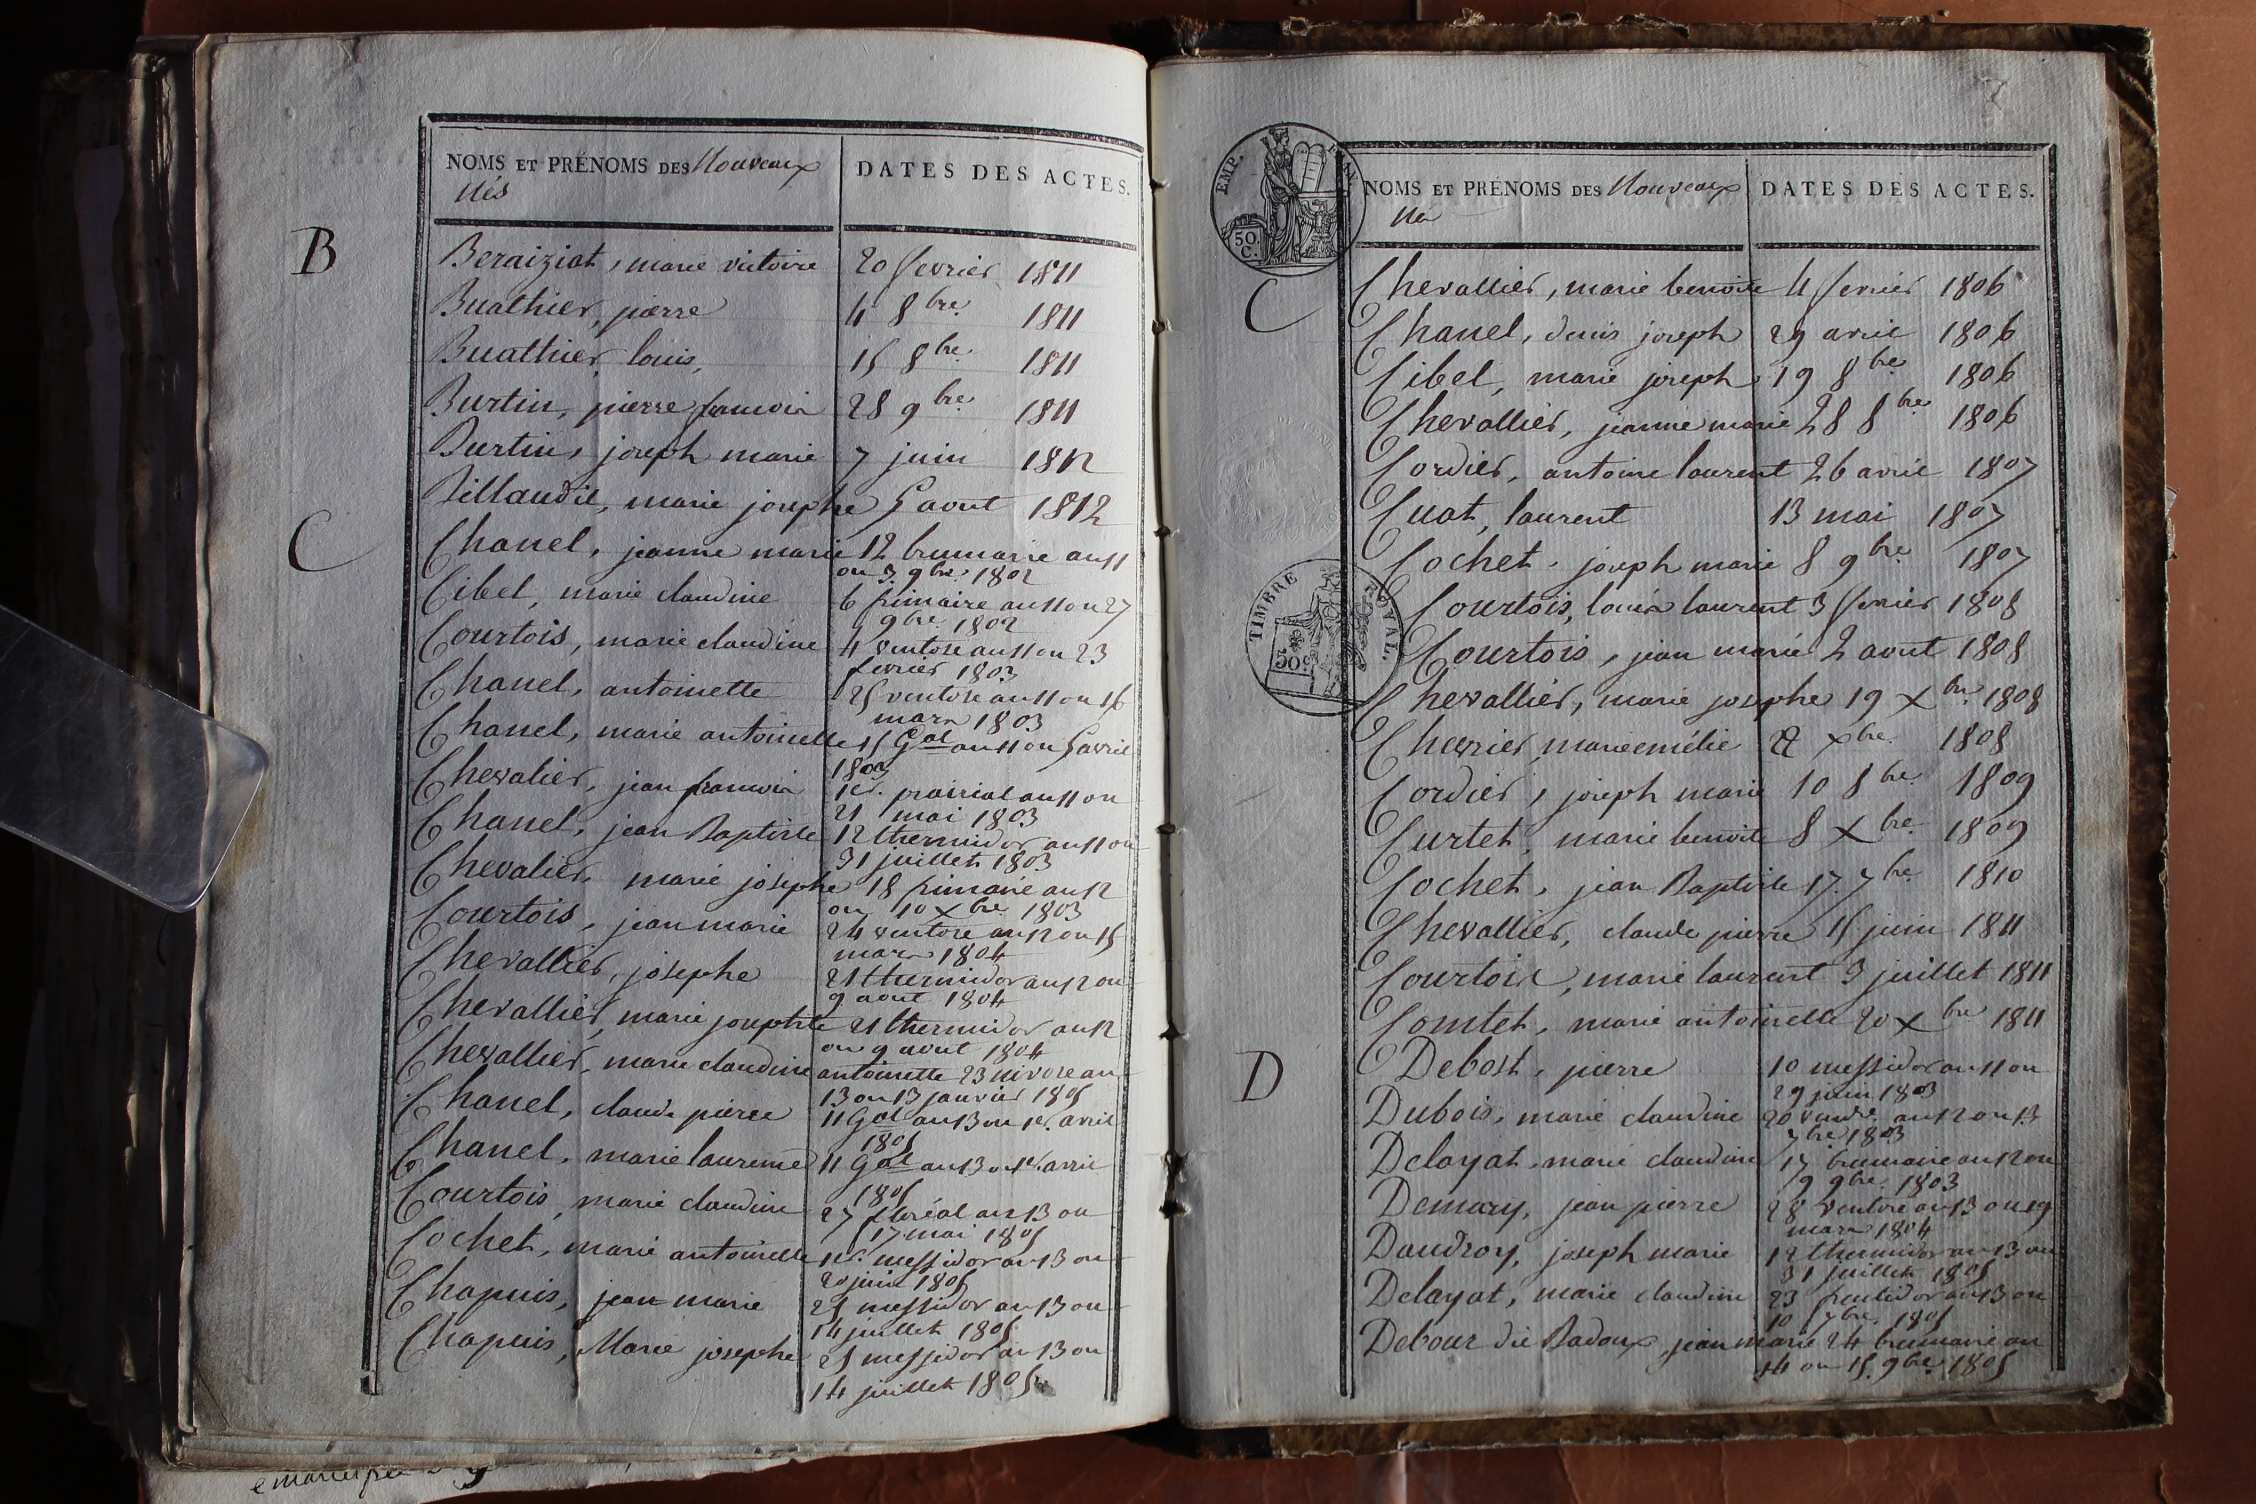 NOMS ET PRÉNOMS DES Nouveaux
Nés
DATES DES ACTES.
B
Beraiziat, marie victoire 20 fevrier 1811
Buathier, pierre 4 8bre. 1811
Buathier, louis, 15 8bre. 1811
Burtin, pierre francois 28 9bre. 1811
Burtin, joseph marie 7 juin 1812
Billaudit, marie josephe 5 aout 1812
C
Chanel, jeanne marie 12 brumaire an 11
ou 3. 9bre. 1802
Cibel, marie claudine 6 frimaire an 11 ou 27
9bre. 1802
Courtois, marie claudine 4 ventose an 11 ou 23
fevrier 1803
Chanel, antoinette 25 ventose an 11 ou 16
mars 1803
Chanel, marie antoinette 15 Gal an 11 ou 5 avril
1803
Chevalier, jean francois 1er. prairial an 11 ou
21 mai 1803
Chanel, jean Baptiste 12 thermidor an 11 ou
31 juillet 1803
Chevalier, marie josephe 18 frimaire an 12
ou 10 Xbre. 1803
Courtois, jean marie 24 ventose an 12 ou 15
mars 1804
Chevallier, josephe 21 thermidor an 12 ou
9 aout 1804
Chevallier, marie josephte 21 thermidor an 12
ou 9 aout 1804
Chevallier, marie claudine antoinette 23 nivose an
13 ou 13 janvier 1805
Chanel, claude pierre 11 Gal an 13 ou 1er. avril
1805
Chanel, marie laurence 11 Gal an 13 ou 1er. avril
1805
Courtois, marie claudine 27 floréal an 13 ou
17 mai 1805
Cochet, marie antoinette 1er. messidor an 13 ou
20 juin 1805
Chapuis, jean marie 25 messidor an 13 ou
14 juillet 1805
Chapuis, Marie josephe 25 messidor an 13 ou
14 juillet 1805
EMP. FRAN.
50.
C.
NOMS ET PRÉNOMS DES Nouveaux
Né
DATES DES ACTES.
C
Chevallier, marie benoite 4 fevrier 1806
Chanel, denis joseph 29 avril 1806
Cibel, marie joseph 19 8bre. 1806
Chevallier, jeanne marie 28 8bre 1806
Cordier, antoine laurent 26 avril 1807
Cuat, laurent 13 mai 1807
Cochet, joseph marie 8 9bre. 1807
TIMBRE ROYAL.
50c
Courtois, louis laurent 3 fevrier 1808
Courtois, jean marie 2 aout 1808
Chevallier, marie josephe 19 Xbre. 1808
Chevrier, marie emélie Xbre. 1808
Cordier, joseph marie 10 8bre. 1809
Curtet, marie benoite 8 Xbre. 1809
Cochet, jean Baptiste 17. 7bre. 1810
Chevallier, claude pierre 15 juin 1811
Courtois, marie laurent 3 juillet 1811
Comtet, marie antoinette 20 Xbre 1811
D
Debost, pierre 10 messidor an 11 ou
29 juin 1803
Dubois, marie claudine 20 vendre. an 12 ou 13
7bre. 1803
Delayat, marie claudine 17 brumaire an 12 ou
9 9bre. 1803
Demury, jean pierre 28 ventose an 13 ou 19
mars 1804
Daudroy, joseph marie 12 thermidor an 13 ou
31 juillet 1805
Delayat, marie claudine 23 fructidor an 13 ou
10 7bre. 1805
Debour dit Badoux, jean marie 24 brumaire an
14 ou 15. 9bre. 1805